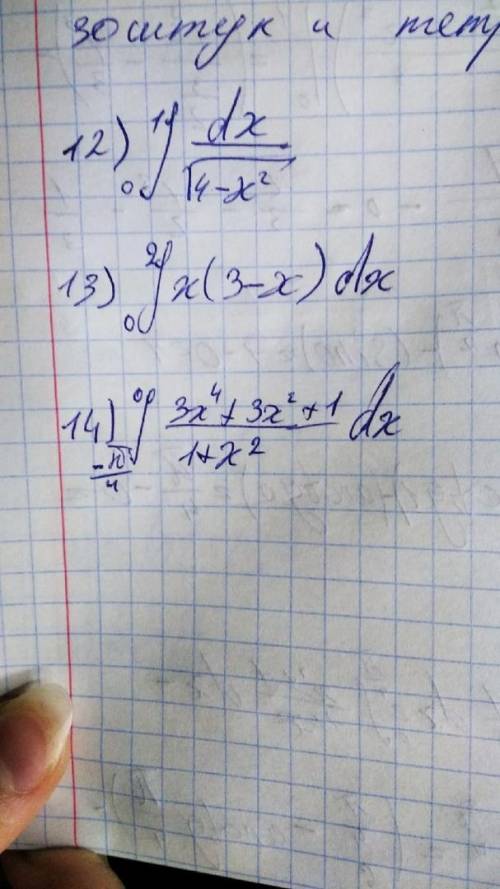 зоштук и тету
12) ₀∫¹ dx / √(4-x²)
13) ₀∫² x(3-x) dx
14) ₋π/₄∫⁰ (3x⁴+3x²+1) / (1+x²) dx